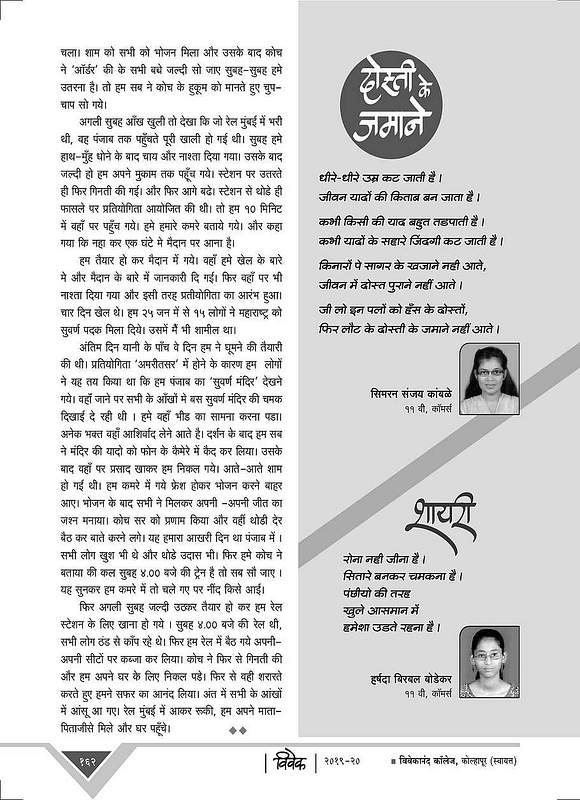 चला। शाम को सभी को भोजन मिला और उसके बाद कोच
ने ‘ऑर्डर’ की के सभी बच्चे जल्दी सो जाए सुबह-सुबह हमे
उतरना है। तो हम सब ने कोच के हुकूम को मानते हुए चुप-
चाप सो गये।
अगली सुबह आँख खुली तो देखा कि जो रेल मुंबई में भरी
थी, वह पंजाब तक पहुँचते पूरी खाली हो गई थी। सुबह हमे
हाथ-मुँह धोने के बाद चाय और नाश्ता दिया गया। उसके बाद
जल्दी हो हम अपने मुकाम तक पहूँच गये। स्टेशन पर उतरते
ही फिर गिनती की गई। और फिर आगे बढे। स्टेशन से थोडे ही
फासले पर प्रतियोगिता आयोजित की थी। तो हम १० मिनिट
में वहाँ पर पहूँच गये। हमे हमारे कमरे बताये गये। और कहा
गया कि नहा कर एक घंटे मे मैदान पर आना है।
हम तैयार हो कर मैदान में गये। वहाँ हमे खेल के बारे
मे और मैदान के बारे में जानकारी दि गई। फिर वहाँ पर भी
नाश्ता दिया गया और इसी तरह प्रतीयोगिता का आरंभ हुआ।
चार दिन खेल थे। हम २५ जन में से १५ लोगों ने महाराष्ट्र को
सुवर्ण पदक मिला दिये। उसमें मैं भी शामील था।
अंतिम दिन यानी के पाँच वे दिन हम ने घूमने की तैयारी
की थी। प्रतियोगिता ‘अमरीतसर’ में होने के कारण हम लोगों
ने यह तय किया था कि हम पंजाब का ‘सुवर्ण मंदिर’ देखने
गये। वहाँ जाने पर सभी के आँखों मे बस सुवर्ण मंदिर की चमक
दिखाई दे रही थी । हमे वहाँ भीड का सामना करना पडा।
अनेक भक्त वहाँ आशिर्वाद लेने आते है। दर्शन के बाद हम सब
ने मंदिर की यादो को फोन के कैमेरे में कैद कर लिया। उसके
बाद वहाँ पर प्रसाद खाकर हम निकल गये। आते-आते शाम
हो गई थी। हम कमरे में गये फ्रेश होकर भोजन करने बाहर
आए। भोजन के बाद सभी ने मिलकर अपनी -अपनी जीत का
जश्न मनाया। कोच सर को प्रणाम किया और वहीं थोडी देर
बैठ कर बाते करने लगे। यह हमारा आखरी दिन था पंजाब में ।
सभी लोग खुश भी थे और थोडे उदास भी। फिर हमे कोच ने
बताया की कल सुबह ४.०० बजे की ट्रेन है तो सब सौ जाए ।
यह सुनकर हम कमरे में तो चले गए पर नींद किसे आई।
फिर अगली सुबह जल्दी उठकर तैयार हो कर हम रेल
स्टेशन के लिए खाना हो गये । सुबह ४.०० बजे की रेल थी,
सभी लोग ठंड से काँप रहे थे। फिर हम रेल में बैठ गये अपनी-
अपनी सीटों पर कब्जा कर लिया। कोच ने फिर से गिनती की
और हम अपने घर के लिए निकल पडे। फिर से वही शरारते
करते हुए हमने सफर का आनंद लिया। अंत में सभी के आंखों
में आंसू आ गए। रेल मुंबई में आकर रूकी, हम अपने माता-
पिताजीसे मिले और घर पहूँचे।
दोस्ती के
जमाने
धीरे-धीरे उम्र कट जाती है ।
जीवन यादों की किताब बन जाता है ।
कभी किसी की याद बहुत तडपाती है ।
कभी यादों के सहारे जिंदगी कट जाती है ।
किनारों पे सागर के खजाने नही आते,
जीवन में दोस्त पुराने नहीं आते ।
जी लो इन पलों को हँस के दोस्तों,
फिर लौट के दोस्ती के जमाने नहीं आते ।
सिमरन संजय कांबळे
११ वी, कॉमर्स
शायरी
रोना नही जीना है ।
सितारे बनकर चमकना है ।
पंछीयो की तरह
खुले आसमान में
हमेशा उडते रहना है ।
हर्षदा बिरबल बोडेकर
११ वी, कॉमर्स
१६२
विवेक
२०१९-२०
विवेकानंद कॉलेज, कोल्हापूर (स्वायत्त)